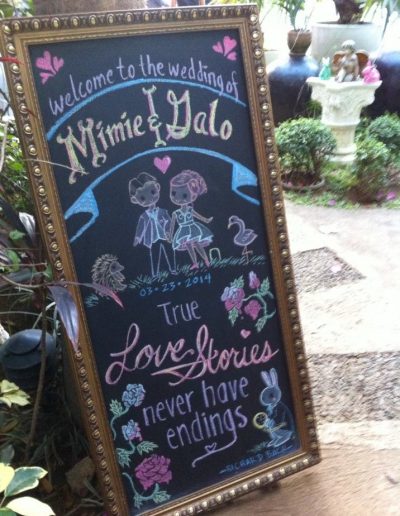 welcome to the wedding of
Mimie & Galo
03-23-2014
True
Love Stories
never have
endings
RICHARD